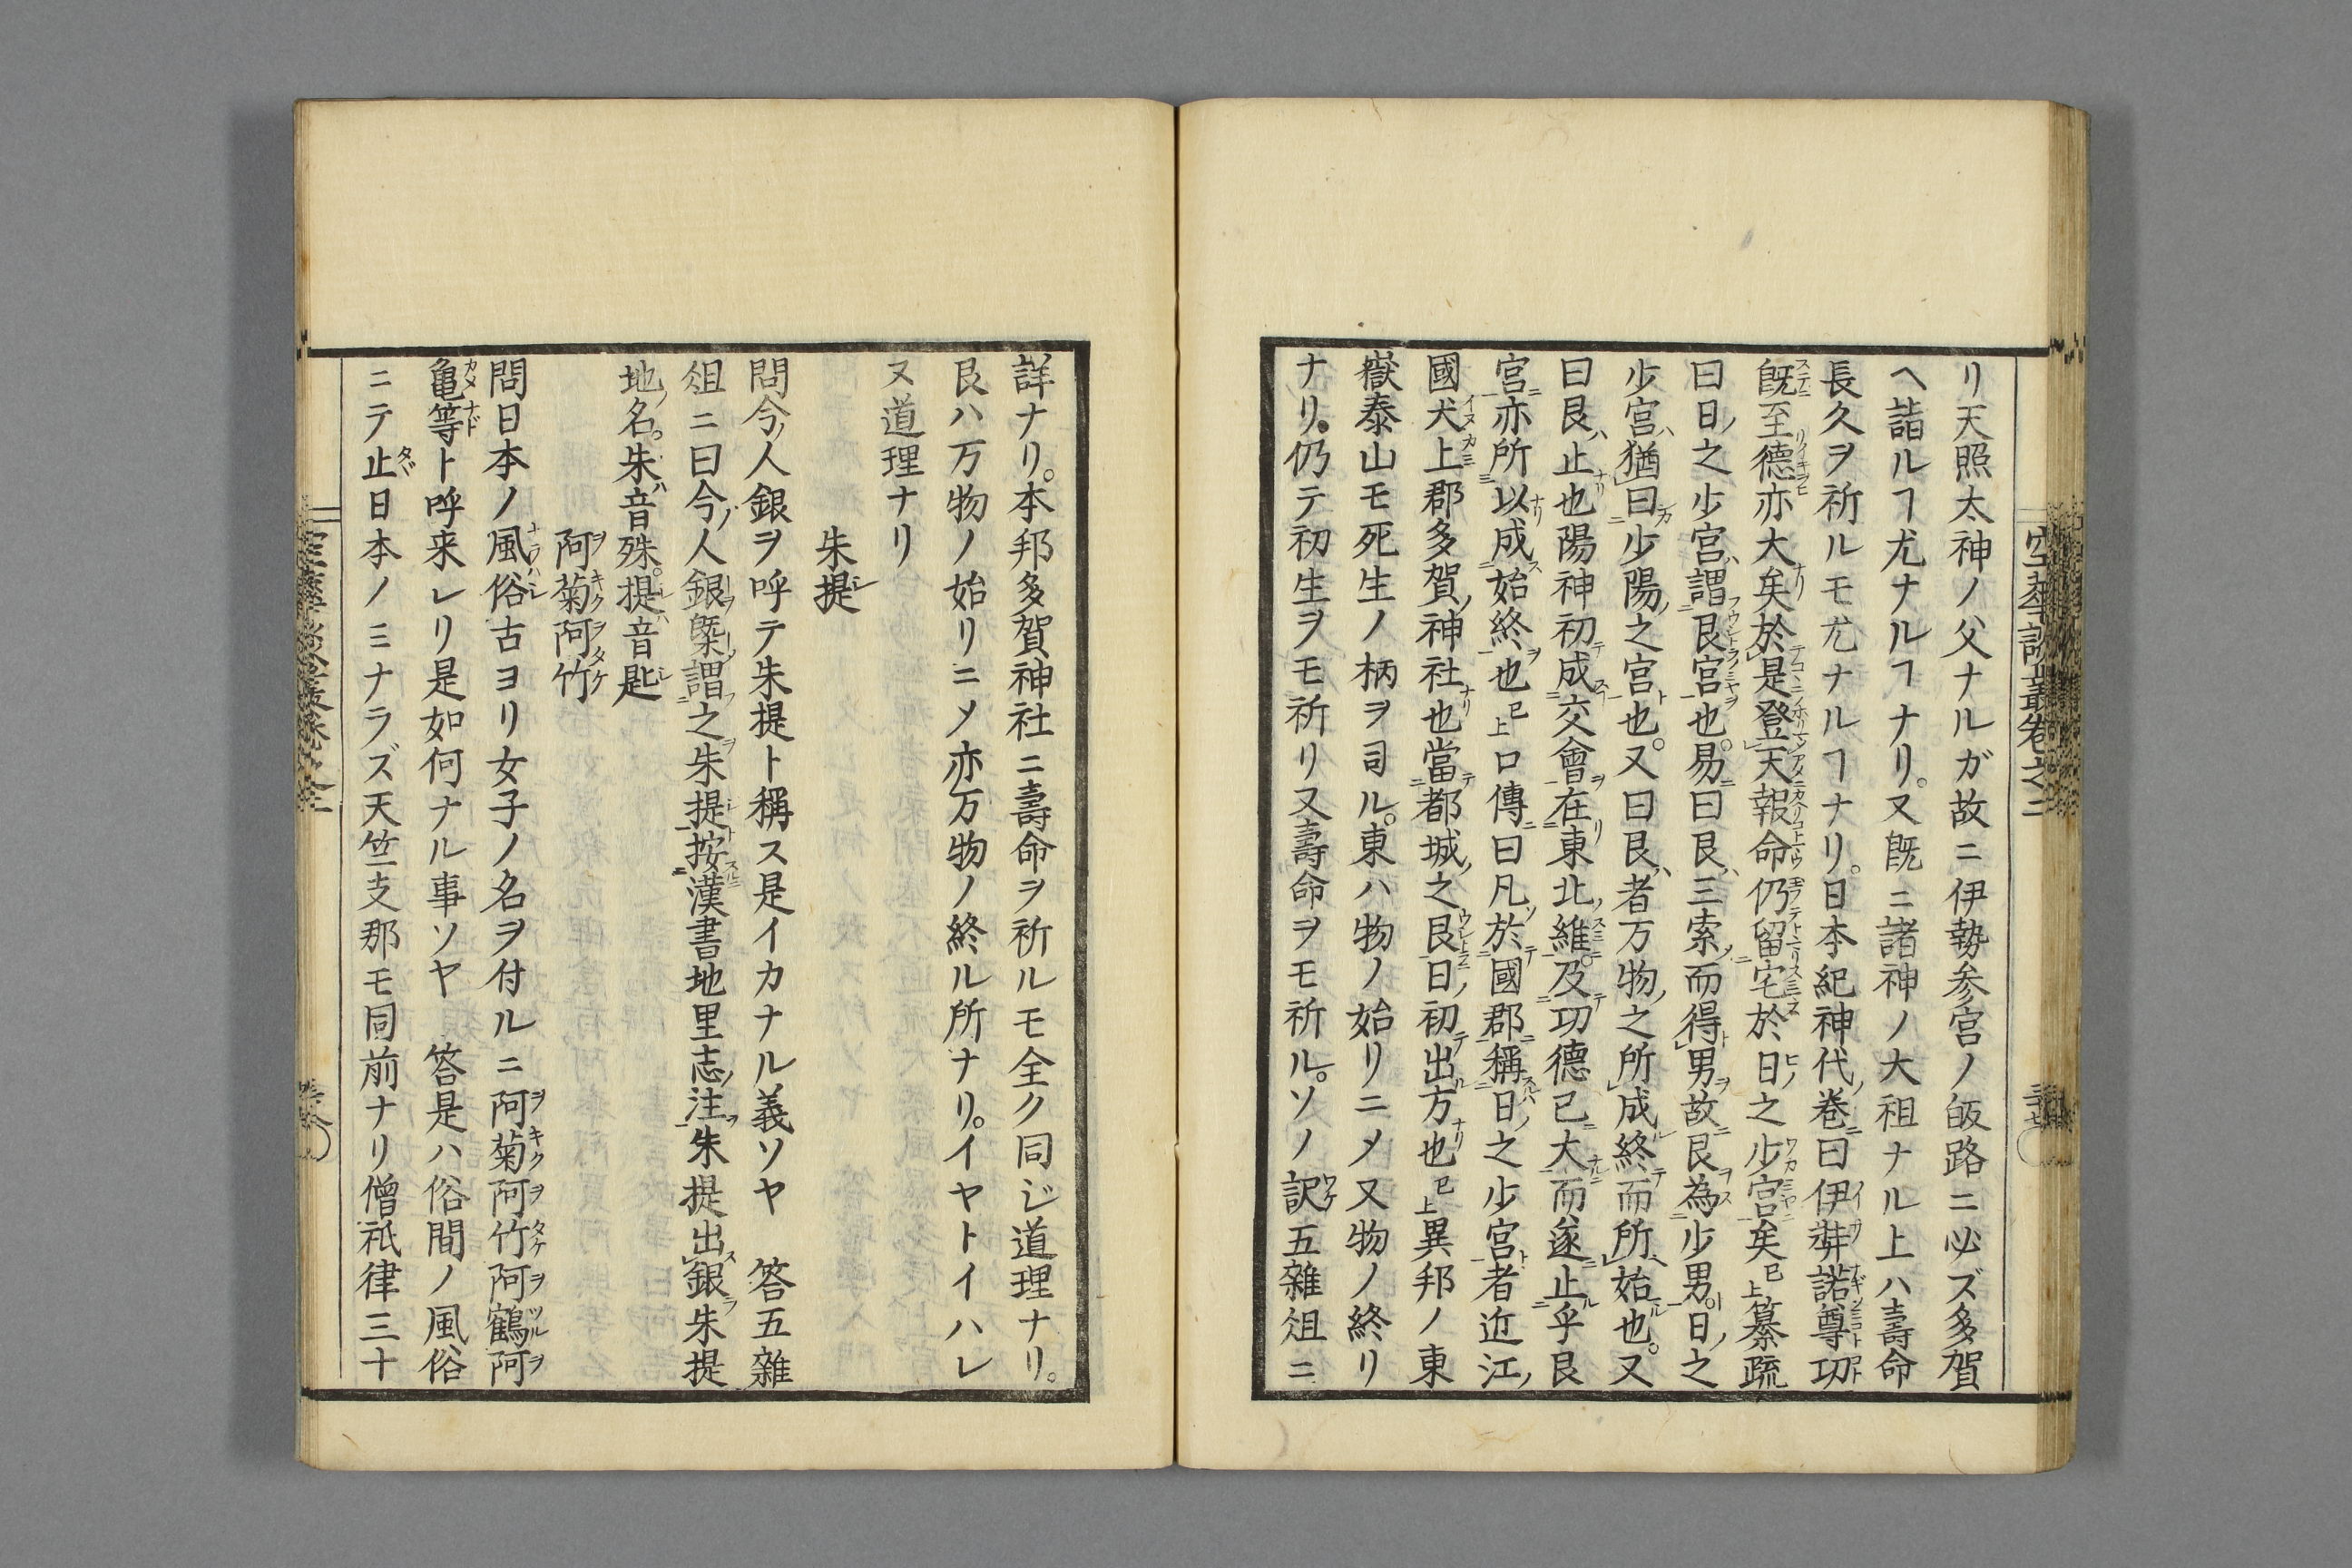 リ天照太神ノ父ナルガ故ニ伊勢参宮ノ皈路ニ必ズ多賀
ヘ詣ルヿ尤ナルヿナリ。又既ニ諸神ノ大祖ナル上ハ壽命
長久ヲ祈ルモ尤ナルヿナリ。日本紀神代ノ巻ニ曰伊弉諾尊功
既至德亦大矣於是登天報命仍留宅於日之少宮矣已上纂疏
曰日ノ之少宮ハ謂艮宮也。易ニ曰艮ハ三索ノ而得男ヲ故ニ艮為少男。日ノ之
少宮ハ猶曰少陽ノ之宮ト也。又曰艮ハ者万物ノ之所成終而所始也。又
曰艮ハ止也陽神初テ成交會ヲ在東北ノ維。及功德已ニ大而遂ニ止乎艮
宮ニ亦所以成始終ヲ也已上口傳ニ曰凡ソ於テ國郡ニ稱日ノ之少宮ト者近江ノ
國犬上郡多賀ノ神社也當テ都城ノ之艮日ノ初テ出ル方也已上異邦ノ東
嶽泰山モ死生ノ柄ヲ司ル。東ハ物ノ始リニメ又物ノ終リ
ナリ。仍テ初生ヲモ祈リ又壽命ヲモ祈ル。ソノ訳五雜俎ニ
詳ナリ。本邦多賀神社ニ壽命ヲ祈ルモ全ク同ジ道理ナリ。
艮ハ万物ノ始リニメ亦万物ノ終ル所ナリ。イヤトイハレ
ヌ道理ナリ
朱提
問今ノ人銀ヲ呼テ朱提ト稱ス是イカナル義ソヤ　答五雜
俎ニ曰今ノ人銀ヲ槩謂之朱提ト按漢書地里志ノ注ヲ朱提出ス銀ヲ朱提
地ノ名。朱ハ音殊。提ハ音匙
阿菊阿竹
問日本ノ風俗古ヨリ女子ノ名ヲ付ルニ阿菊阿竹阿鶴阿
亀等ト呼来レリ是如何ナル事ソヤ　答是ハ俗間ノ風俗
ニテ止日本ノミナラズ天竺支那モ同前ナリ僧祇律三十